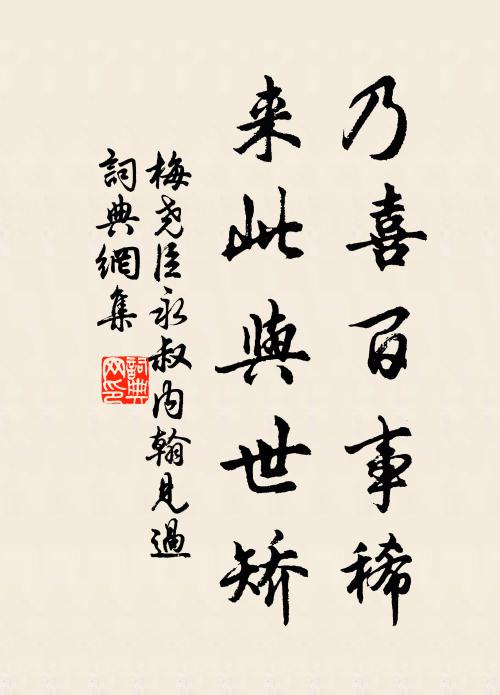 乃喜百事稀
来此與世矫
梅尧臣永叔内翰見過
詞典網集
詞典網印